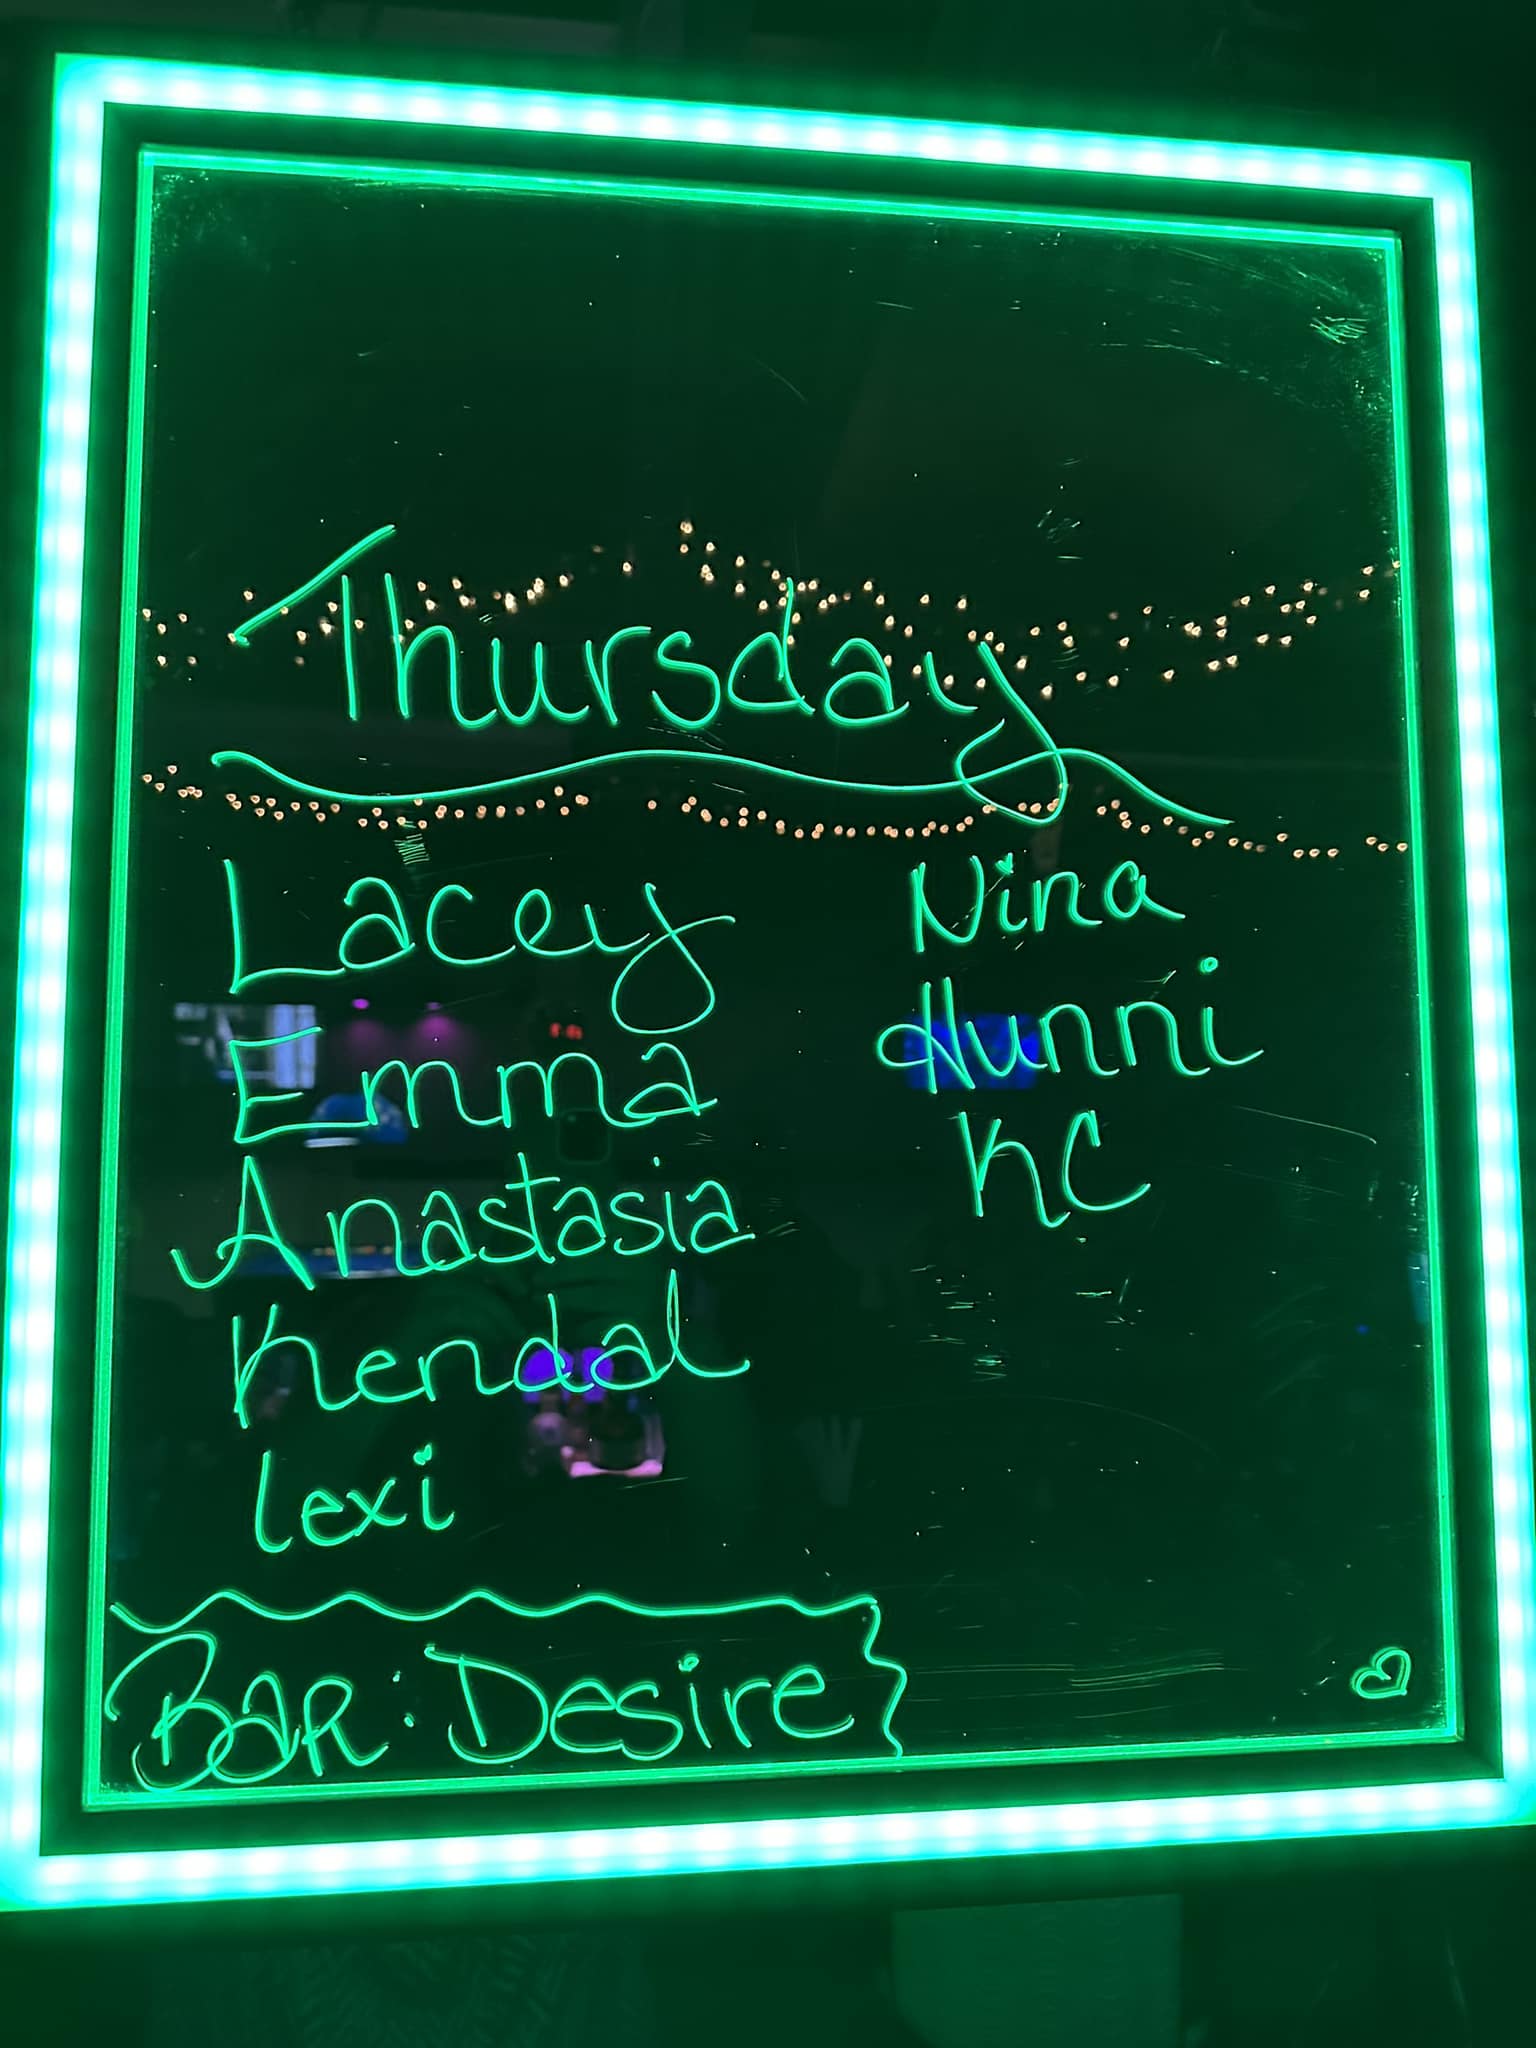 Thursday
Lacey
Emma
Anastasia
Kendal
lexi
Nina
Hunni
KC
BAR: Desire